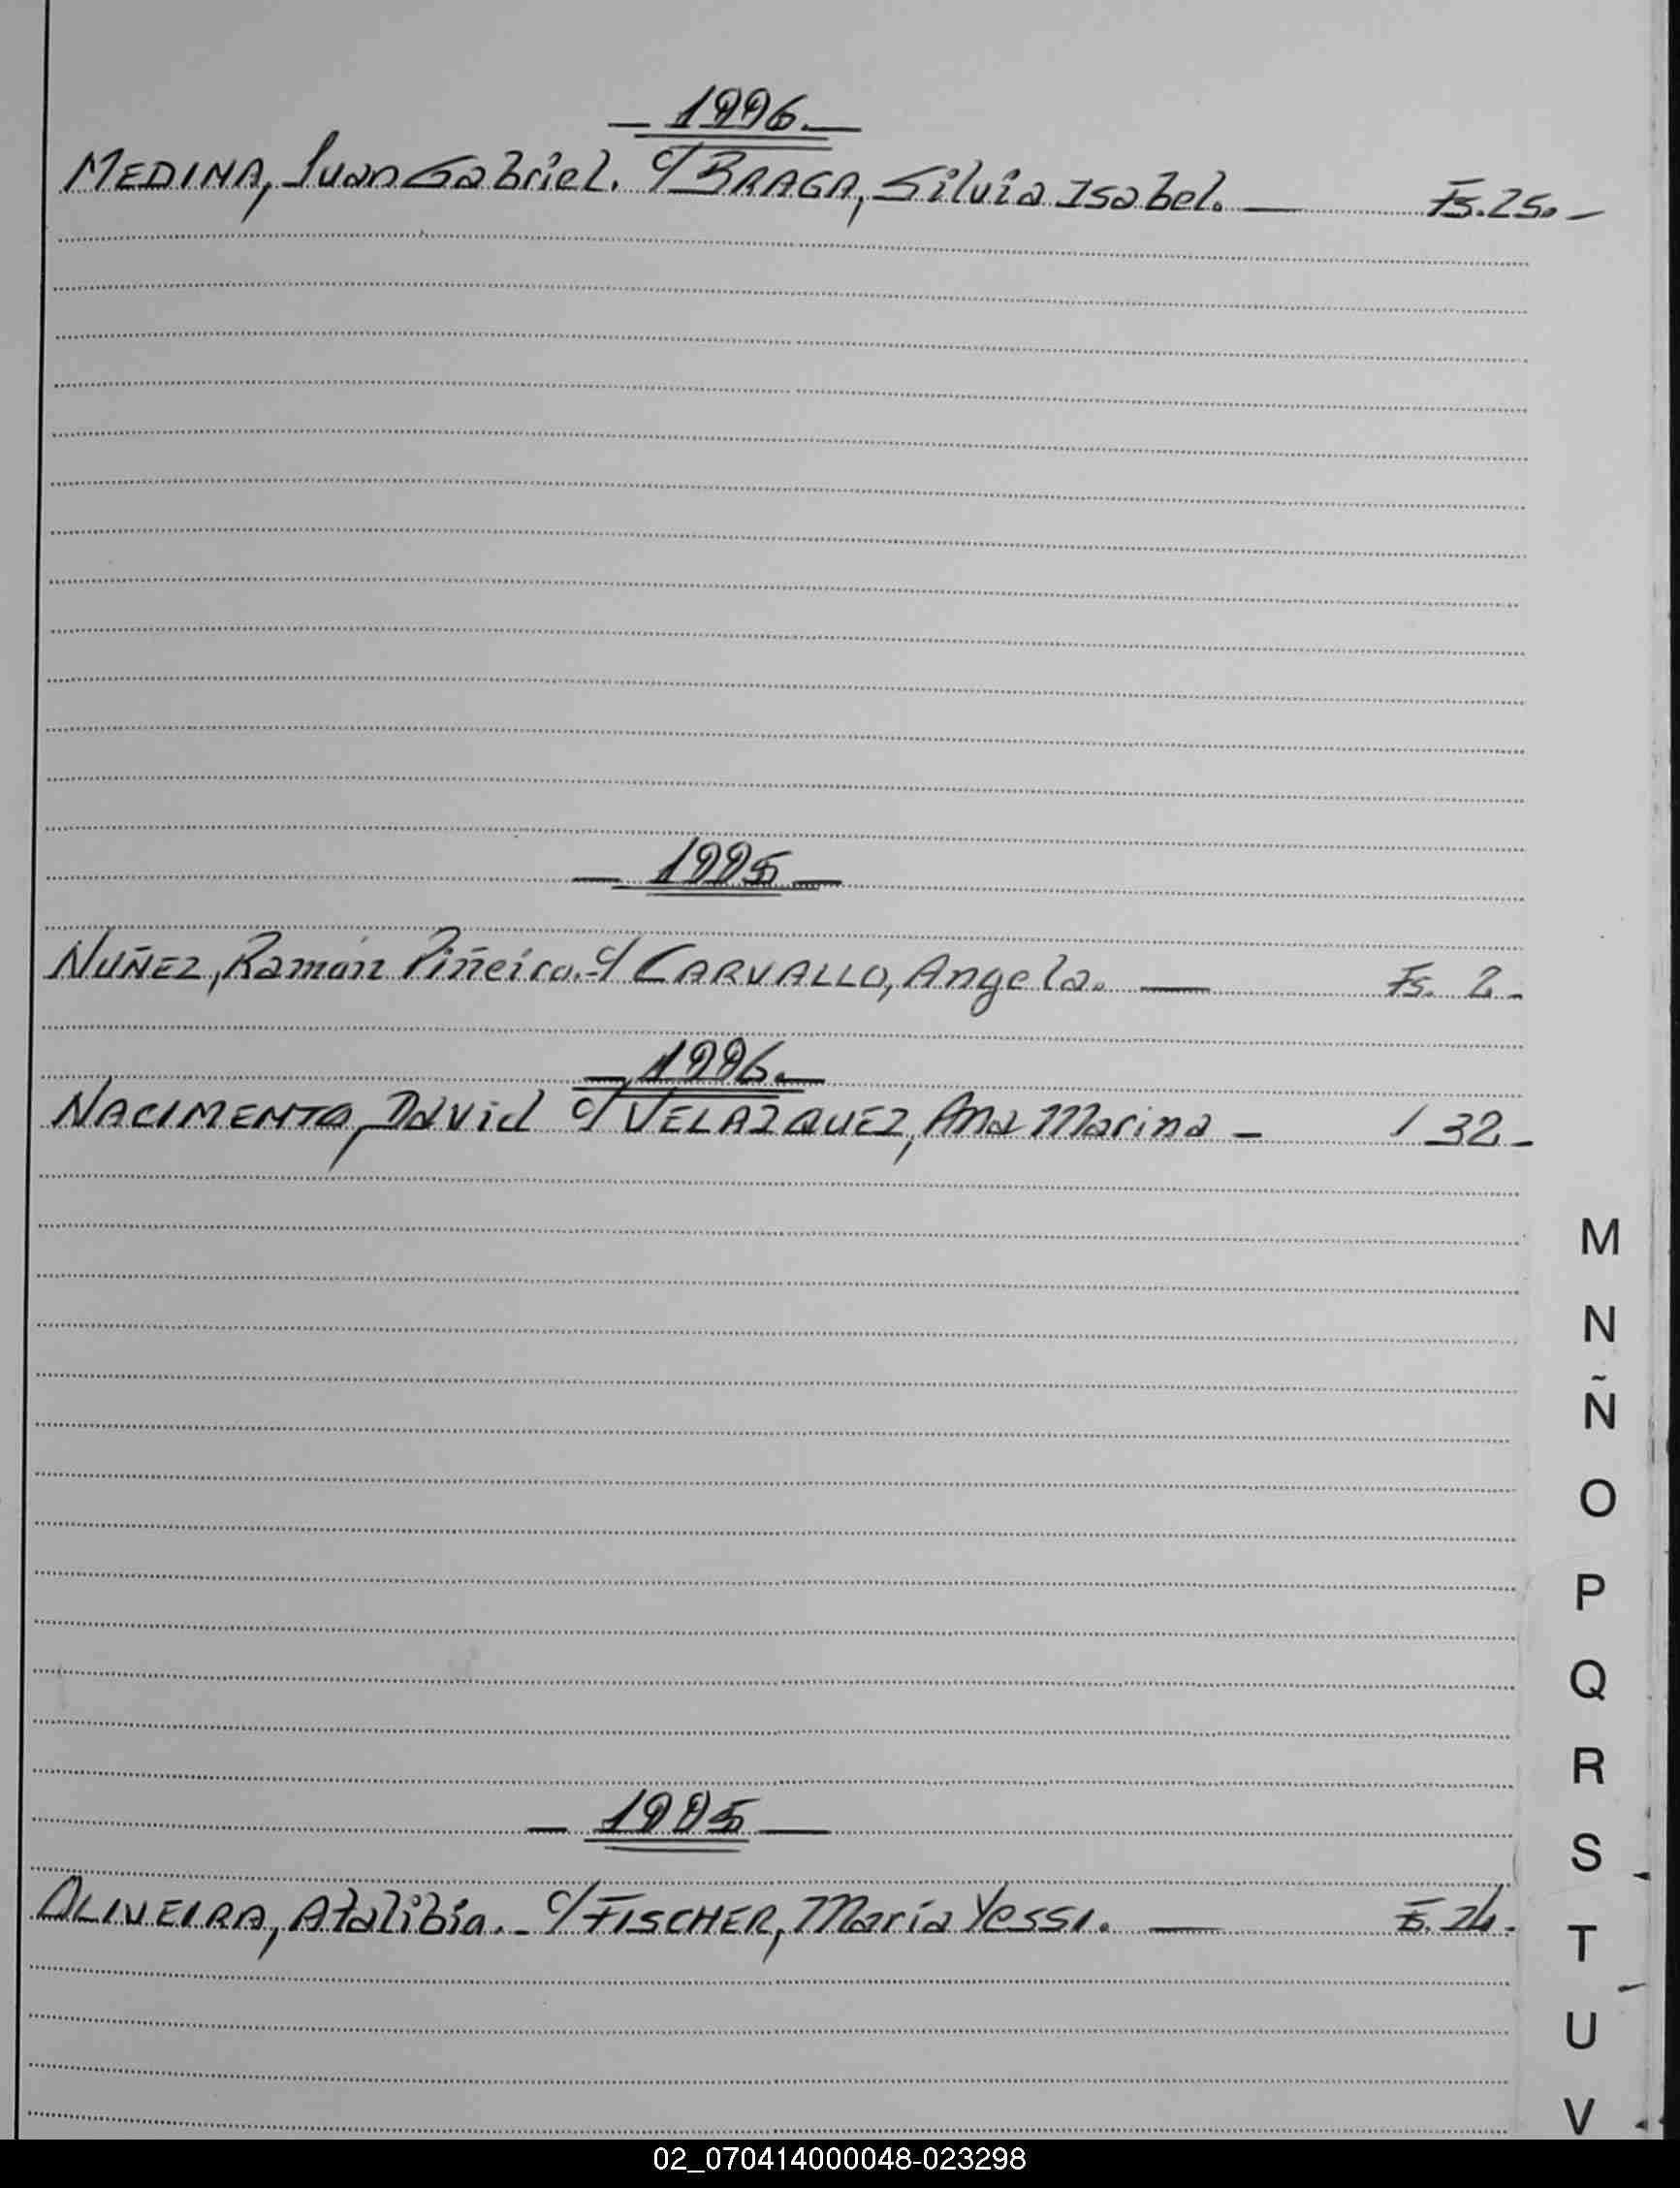 — 1996. —
MEDINA, Juan Gabriel. c/ BRAGA, Silvia Isabel. — Fs. 25. —
— 1995 —
NUÑEZ, Ramón Piñeiro.- c/ CARVALLO, Angela. — Fs. 2 -
— 1996. —
NACIMENTO, David c/ VELAZQUEZ, Ana Marina — / 32 -
M
N
Ñ
O
P
Q
R
— 1995 —
S
OLIVEIRA, Atalibia. - c/ FISCHER, María Yessi. — Fs. 24.
T
U
V
02_070414000048-023298